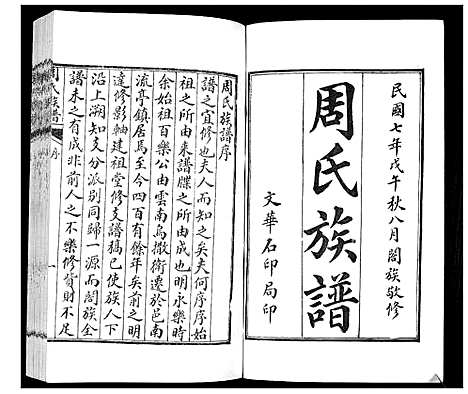 民國七年戊午秋八月闔族敬修
周氏族譜
文華石印局印
周氏族譜序
譜之宜修也夫人而知之矣夫何序序始
祖之所由來譜牒之所由成也明永樂時
余始祖百樂公由雲南烏撒衛遷於邑南
流亭鎮居焉至今四百有餘年矣前之明
達修影軸建祖堂修支譜稿已使族人下
沿上溯知支分派別同歸一源而闔族全
譜未之有成非前人之不樂修貲財不足
周氏族譜
序
一